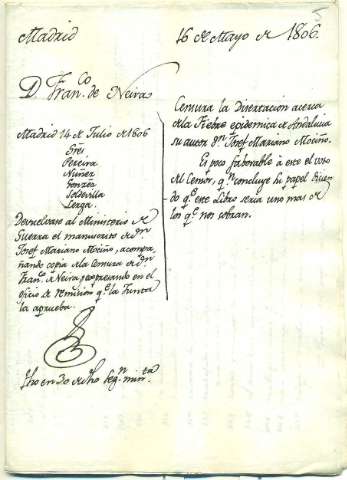 5
Madrid 16 de Mayo de 1806.
D. Fran.co de Neira
Censura la Disertacion acerca
de la Fiebre epidemica de Andalucia
su autor D.n Josef Mariano Moziño.
Es poco favorable à este el voto
del Censor, q.n concluye su papel dicien-
do q.e este Libro seria uno mas de
los q.e nos sobran.
Madrid 14 de Julio de 1806
Sres
Pereira
Nuñez
Gonzez
Soldevilla
Lerga.
Devuelvase al Ministerio de
Guerra el manuscrito de D.n
Josef Mariano Moziño, acompa-
ñando copia de la Censura de D.n
Fran.co de Neira, y expresando en el
oficio de remision q.e la Junta
la aprueba.
fho en 30 de dho seg.n min.ta